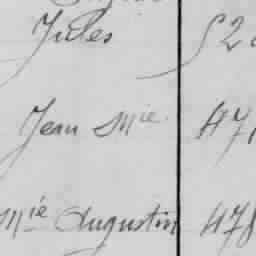 Jules 52
Jean Mie 47
Mie Augustin 478